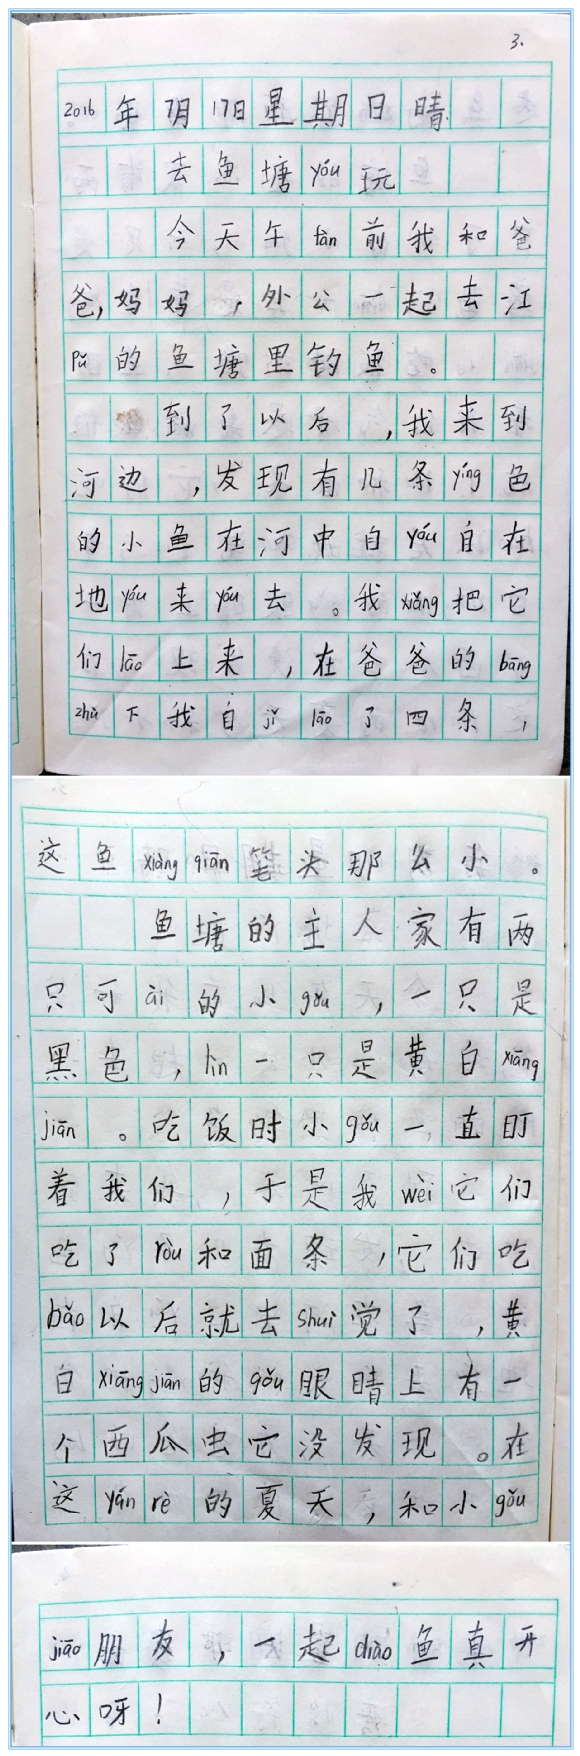 3.
2016年7月17日星期日晴
去鱼塘yóu玩
今天午fàn前我和爸
爸,妈妈,外公一起去江
pǔ的鱼塘里钓鱼。
到了以后,我来到
河边,发现有几条yíng色
的小鱼在河中自yóu自在
地yóu来yóu去。我xiǎng把它
们lāo上来,在爸爸的bāng
zhù下我自jǐ lāo了四条,
这鱼xiàng qiān笔头那么小。
鱼塘的主人家有两
只可ài的小gǒu,一只是
黑色,lìn一只是黄白xiāng
jiān。吃饭时小gǒu一直盯
着我们,于是我wèi它们
吃了ròu和面条,它们吃
bǎo以后就去shuì觉了,黄
白xiāng jiān的gǒu眼睛上有一
个西瓜虫它没发现。在
这yán rè的夏天,和小gǒu
jiāo朋友,一起diào鱼真开
心呀!